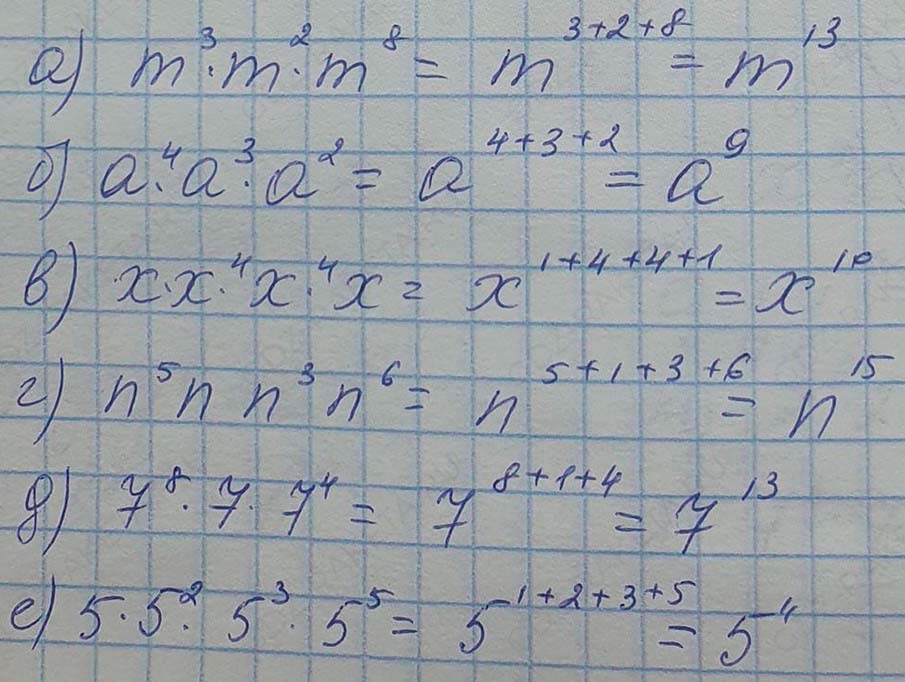 а) m³·m²·m⁸ = m³⁺²⁺⁸ = m¹³
б) a⁴·a³·a² = a⁴⁺³⁺² = a⁹
в) x·x·⁴x·⁴x = x¹⁺⁴⁺⁴⁺¹ = x¹⁰
г) n⁵n n³n⁶ = n⁵⁺¹⁺³⁺⁶ = n¹⁵
д) 7⁸·7·7⁴ = 7⁸⁺¹⁺⁴ = 7¹³
е) 5·5²·5³·5⁵ = 5¹⁺²⁺³⁺⁵ = 5⁴